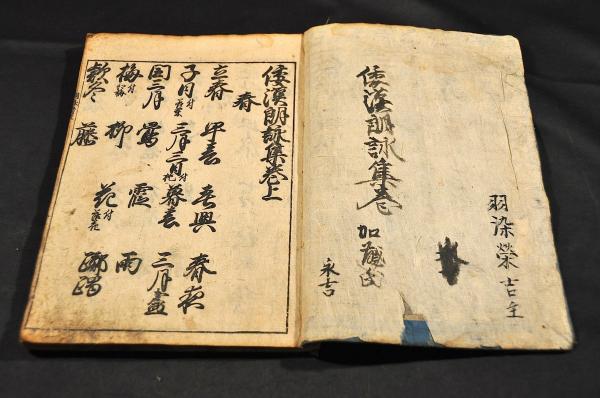 羽染榮吉主
倭漢朗詠集巻
加藏氏
永吉
倭漢朗詠集巻上
春
立春 早春 春興 春夜
子日付若菜 三月三日付桃 暮春 三月盡
閏三月 鶯 霞 雨
梅付紅梅 柳 花付落花 躑躅
款冬 藤